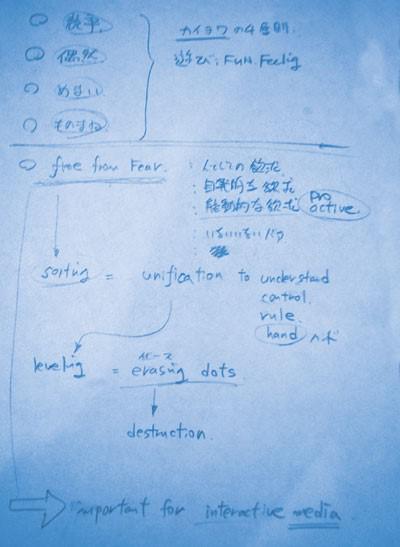 ○ 競争
○ 偶然
○ めまい
○ ものまね
カイヨワの4原則.
遊び: FUN. Feeling
○ free from Fear.
: 人としての欲求
: 自発的な欲求
: 能動的な欲求 pro active.
: いないいないバァ
sorting = unification to understand
control.
rule.
hand へ
イレース
leveling = erasing dots
destruction.
⇒ important for interactive media.